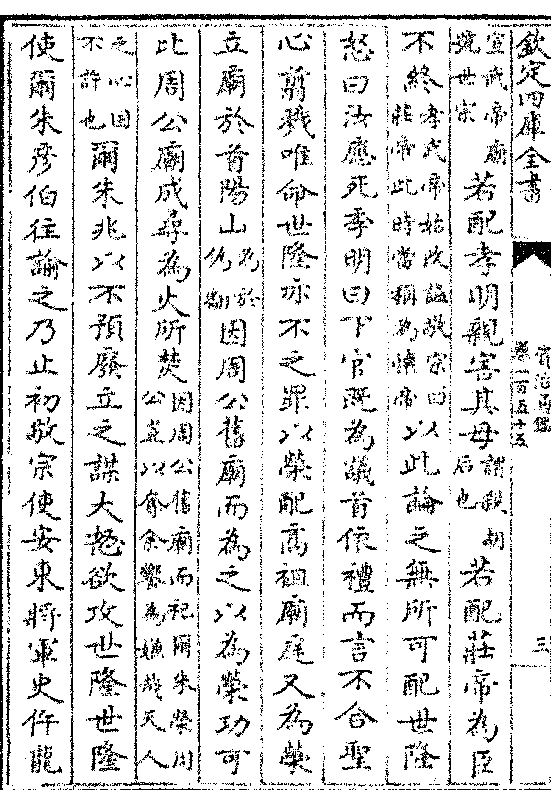 欽定四庫全書
資治通鑑
卷一百五十五
三
宣武帝廟號世宗若配孝明親害其母謂殺胡后也若配莊帝為臣
不終孝武帝始改諡敬宗曰莊帝此時當稱為懷帝以此論之無所可配世隆
怒曰汝應死季明曰下官既為議首依禮而言不合聖
心翦戮唯命世隆亦不之罪以榮配高祖廟庭又為榮
立廟於首陽山為於偽翻因周公舊廟而為之以為榮功可
比周公廟成尋為火所焚因周公舊廟而祀爾朱榮周公豈以奪余饗為嫌哉天人
之心固不許也爾朱兆以不預廢立之謀大怒欲攻世隆世隆
使爾朱彥伯往諭之乃止初敬宗使安東將軍史仵龍